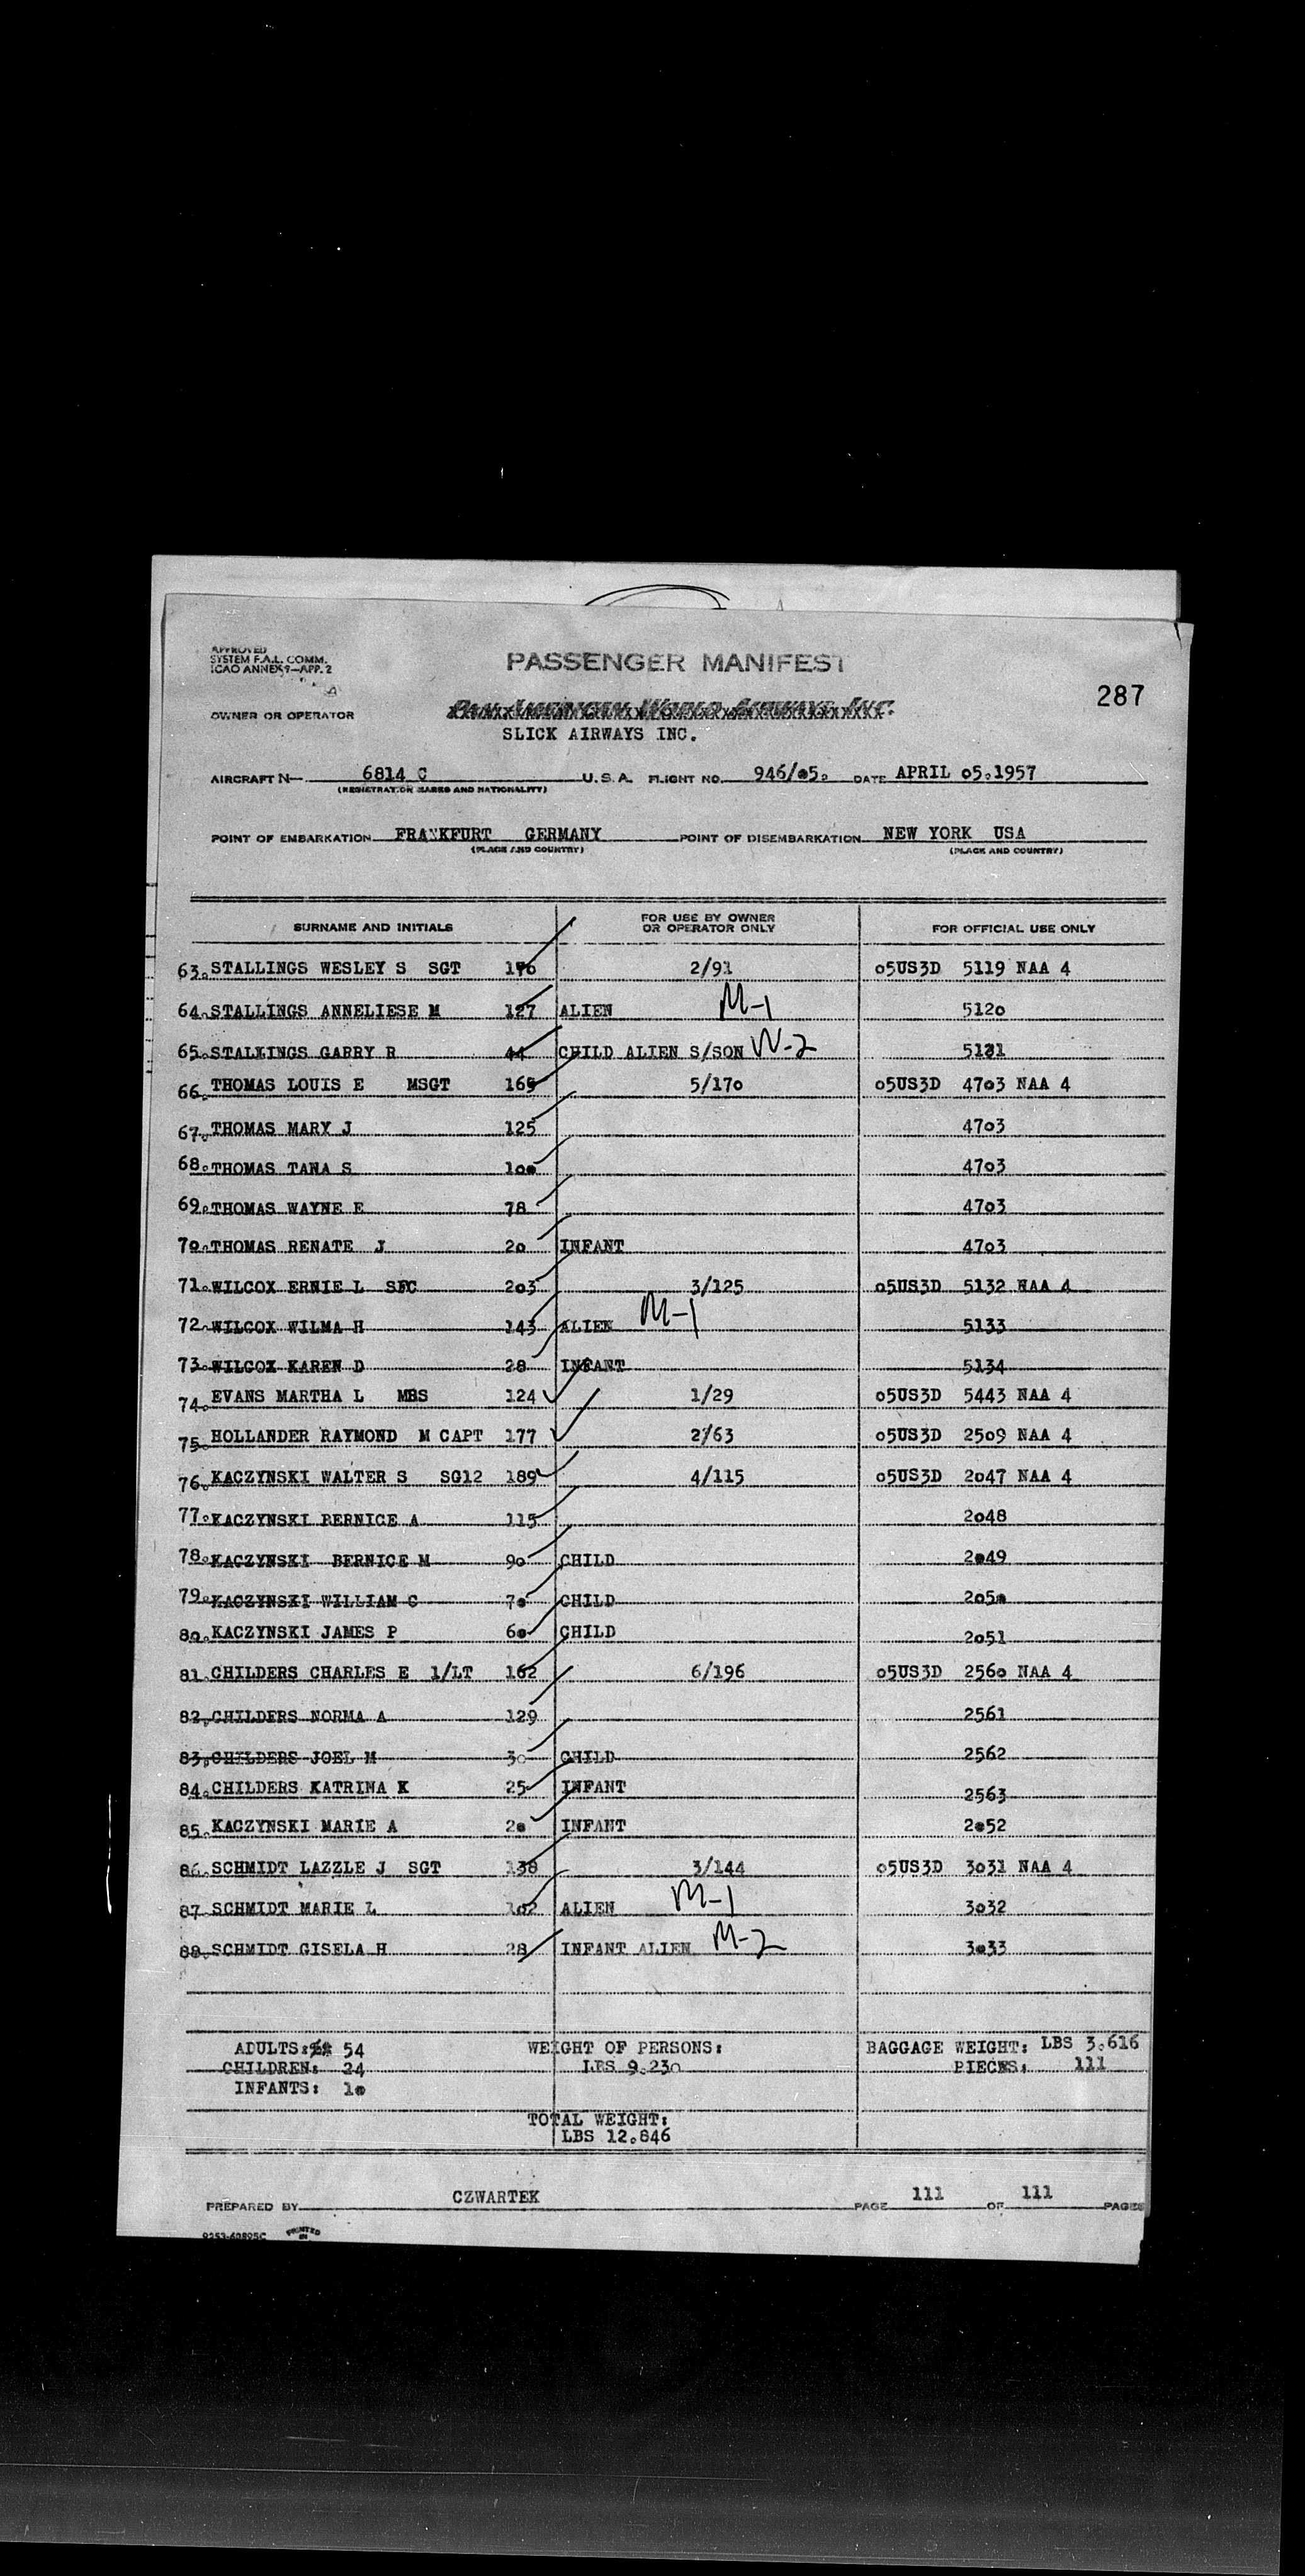 APPROVED
SYSTEM F.A.L. COMM.
ICAO ANNEX 9—APP. 2
PASSENGER MANIFEST
287
OWNER OR OPERATOR PAN AMERICAN WORLD AIRWAYS INC.
SLICK AIRWAYS INC.
AIRCRAFT N— 6814 C U.S.A. FLIGHT NO. 946/05. DATE APRIL 05.1957
(REGISTRATION MARKS AND NATIONALITY)
POINT OF EMBARKATION FRANKFURT GERMANY POINT OF DISEMBARKATION NEW YORK USA
(PLACE AND COUNTRY) (PLACE AND COUNTRY)
SURNAME AND INITIALS FOR USE BY OWNER OR OPERATOR ONLY FOR OFFICIAL USE ONLY
63. STALLINGS WESLEY S SGT 176 2/91 05US3D 5119 NAA 4
64. STALLINGS ANNELIESE M 127 ALIEN M-1 5120
65. STALLINGS GARRY R 44 CHILD ALIEN S/SON M-2 5121
66. THOMAS LOUIS E MSGT 165 5/170 05US3D 4703 NAA 4
67. THOMAS MARY J 125 4703
68. THOMAS TANA S 100 4703
69. THOMAS WAYNE E 78 4703
70. THOMAS RENATE J 20 INFANT 4703
71. WILCOX ERNIE L SFC 203 3/125 05US3D 5132 NAA 4
72. WILCOX WILMA H 143 ALIEN M-1 5133
73. WILCOX KAREN D 28 INFANT 5134
74. EVANS MARTHA L MRS 124 1/29 05US3D 5443 NAA 4
75. HOLLANDER RAYMOND M CAPT 177 2/63 05US3D 2509 NAA 4
76. KACZYNSKI WALTER S SG12 189 4/115 05US3D 2047 NAA 4
77. KACZYNSKI BERNICE A 115 2048
78. KACZYNSKI BERNICE M 90 CHILD 2049
79. KACZYNSKI WILLIAM C 70 CHILD 2050
80. KACZYNSKI JAMES P 60 CHILD 2051
81. CHILDERS CHARLES E 1/LT 162 6/196 05US3D 2560 NAA 4
82. CHILDERS NORMA A 129 2561
83. CHILDERS JOEL M 30 CHILD 2562
84. CHILDERS KATRINA K 25 INFANT 2563
85. KACZYNSKI MARIE A 20 INFANT 2052
86. SCHMIDT LAZZLE J SGT 138 3/144 05US3D 3031 NAA 4
87. SCHMIDT MARIE L 102 ALIEN M-1 3032
88. SCHMIDT GISELA H 28 INFANT ALIEN M-2 3033
ADULTS: 54 WEIGHT OF PERSONS: BAGGAGE WEIGHT: LBS 3.616
CHILDREN: 24 LBS 9.230 PIECES: 111
INFANTS: 10
TOTAL WEIGHT:
LBS 12.846
PREPARED BY CZWARTEK PAGE 111 OF 111 PAGES
PRINTED IN